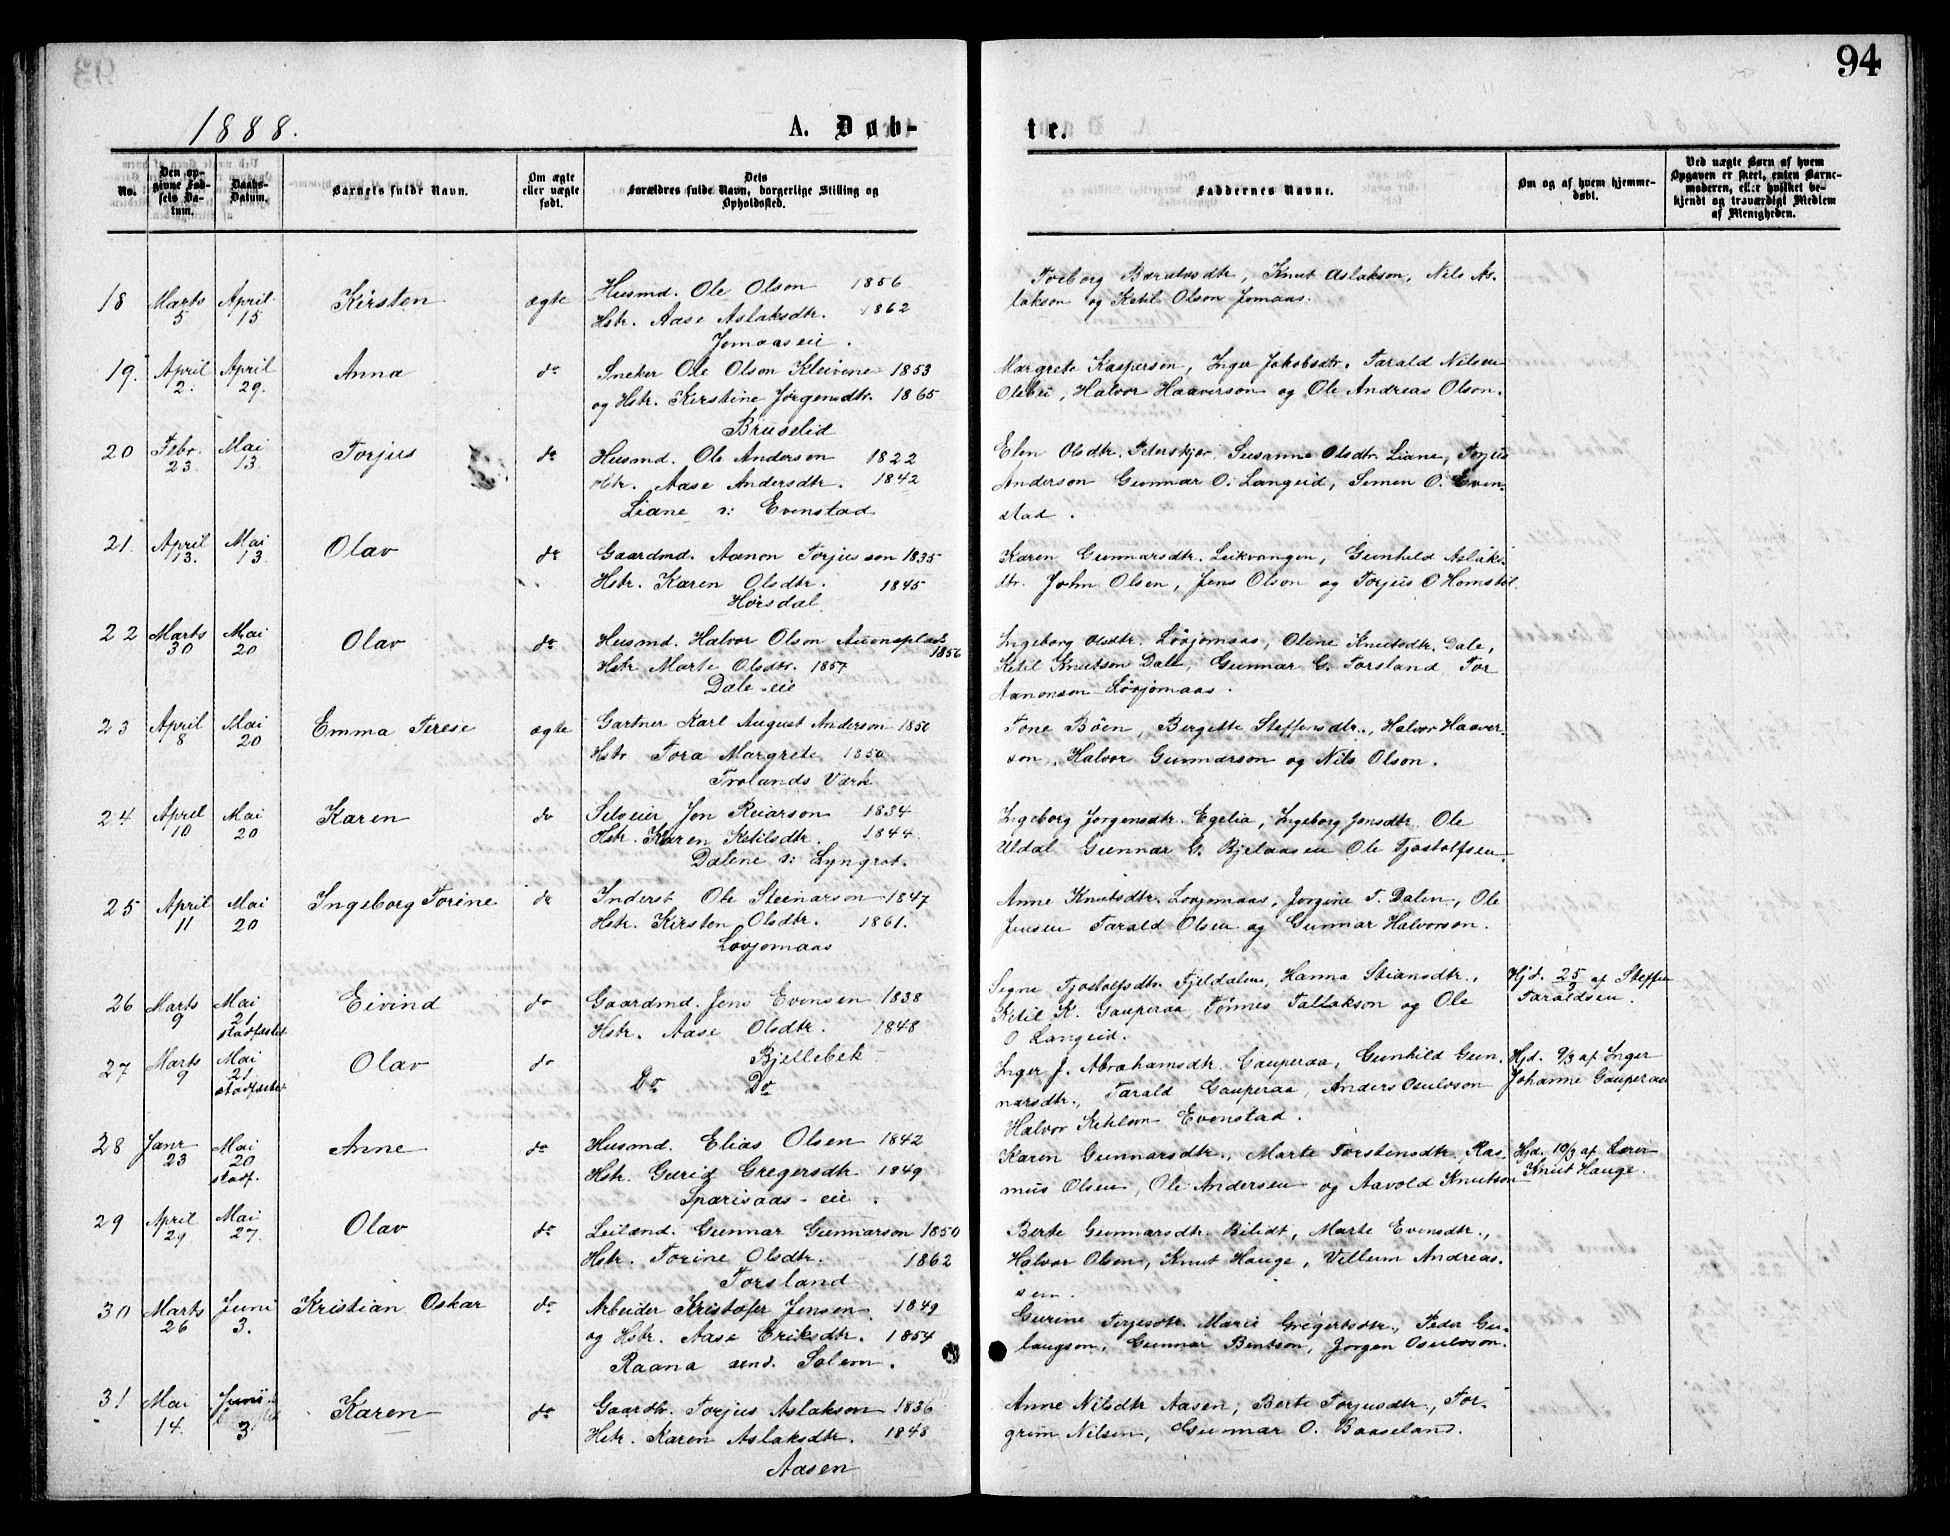 94
1888.
A. Døb-
te.
No.
Den op-
givne Fød-
sels Da-
tum.
Daabs-
Datum.
Barnets fulde Navn.
Om ægte
eller uægte
født.
Dets
Forældres fulde Navn, borgerlige Stilling og
Opholdssted.
Faddernes Navne.
Om og af hvem hjemme-
døbt.
Ved uægte Børn af hvem
Opgaven er skeet, enten Barne-
moderen, eller hvilket be-
kjendt og troværdigt Medlem
af Menigheden.
18 Marts 5 April 15 Kirsten ægte Husmd. Ole Olson 1856
Hstr. Aase Aslaksdtr. 1862
Jomaaseie.
Knut Aslakson, Nils As-
lakson og Ketil Olson Jomaas.
19. April 2. April 29. Anna do Sneker Ole Olson Kleivene 1853
og Hstr. Kirstine Jørgensdtr. 1865
Bruselid
Margrete Kasperson, Inger Jakobsdtr. Tarald Nilsen
Halvor Haaverson og Ole Andreas Olson.
20 Febr. 23. Mai 13 Torjus do Husmd. Ole Anderson 1822
Hstr. Aase Andersdtr. 1842
Liane s: Evenstad
Elen Olsdtr. Peterskjær, Susanne Olsdtr Liane, Torjus
Anderson Gunnar O. Langeid, Simen O. Even-
stad.
21. April 13. Mai 13 Olav do Gaardmd. Aanon Torjusson 1835
Hstr. Karen Olsdtr. 1845
Hørsdal.
Karen Gunnarsdtr. Leikvangen, Gunhild Aslaks-
dtr. John Olsen, Jens Olson og Torjus O Homstøl.
22 Marts 30 Mai 20 Olav do Husmd. Halvor Olson Auensplads 1856
Hstr Marte Olsdtr. 1857
Dale-eie
Ingeborg Olsdtr. Løvjomaas, Oline Knutsdtr. Dale,
Ketil Knutson Dale, Gunnar G. Torsland Tor
Aanonson Løvjomaas.
23 April 8 Mai 20 Emma Terese ægte Gartner Karl August Anderson 1850
Hstr Tora Margrete 1850
Frolands Værk
Tone Bøen, Bergitte Steffensdtr., Halvor Haaver-
son, Halvor Gunnarson og Nils Olson.
24 April 10 Mai 20 Karen do Selveier Jon Reiarson 1834
Hstr. Karen Ketilsdtr. 1844
Dalene s: Lyngrot.
Ingeborg Jørgensdtr. Egelia, Ingeborg Jensdtr. Ole
Uldal Gunnar G. Bjelaasen Ole Tjostolfsen.
25 April 11 Mai 20 Ingeborg Torine do Inderst Ole Steinarson 1847
Hstr. Kirsten Olsdtr. 1861.
Løvjomaas
Anne Knutsdtr. Lovjomaas, Jørgine T. Dalen, Ole
Jensen Tarald Olsen og Gunnar Halvorson.
26 Marts 9 Mai 21 stadfæstet Eivind do Gaardmd. Jens Evensen 1838
Hstr. Aase Olsdtr. 1848
Bjellebek
Signe Tjostolfsdtr. Fjeldalen, Hanna Steansdtr.,
Ketil K. Gauperaa, Tønnes Tallakson og Ole
O Langeid.
Hjd. 25/3 af Steffen
Taraldsen.
27 Marts 9 Mai 21. stadfæstet Olav do Do Do
Inger J. Abrahamsdtr. Gauperaa, Gunhild Gun-
narsdtr., Tarald Gauperaa, Anders Osulvson
Halvor Ketilson Evenstad.
Hjd. 9/3 af Inger
Johanne Gauperaa
28 Janr 23 Mai 20 stadf. Anne do Husmd. Elias Olsen 1842
Hstr. Gurid Gregersdtr 1849
Sparisaas-eie.
Karen Gunnarsdtr., Marte Torstensdtr, Ras-
mus Olsen, Ole Andersen og Aavold Knutson
Hjd. 10/3 af Lærer
Knut Hauge.
29 April 29 Mai 27. Olav do Leilænd. Gunnar Gunnarson 1850
Hstr. Torine Olsdtr. 1862
Torsland
Berte Gunnarsdtr. Bilidt, Marte Evensdtr.,
Halvor Olsen, Knut Hauge, Villum Andreas-
sen.
30 Marts 26 Juni 3. Kristian Oskar do Arbeider Kristofer Jensen 1849
og Hstr. Aase Eriksdtr. 1854
Raana send. Solem.
Gurine Terjesdtr. Marie Gregertsdtr., Peder Gu-
laugson, Gunnar Bentson, Jørgen Osulvson.
31 Mai 14. Juni 3. Karen do Gaardbr. Torjus Aslakson 1836
Hstr. Karen Aslaksdtr. 1848
Aasen
Anne Nilsdtr Aasen, Berte Torjusdtr., Tor-
grim Nilsen, Gunnar O. Baaseland.